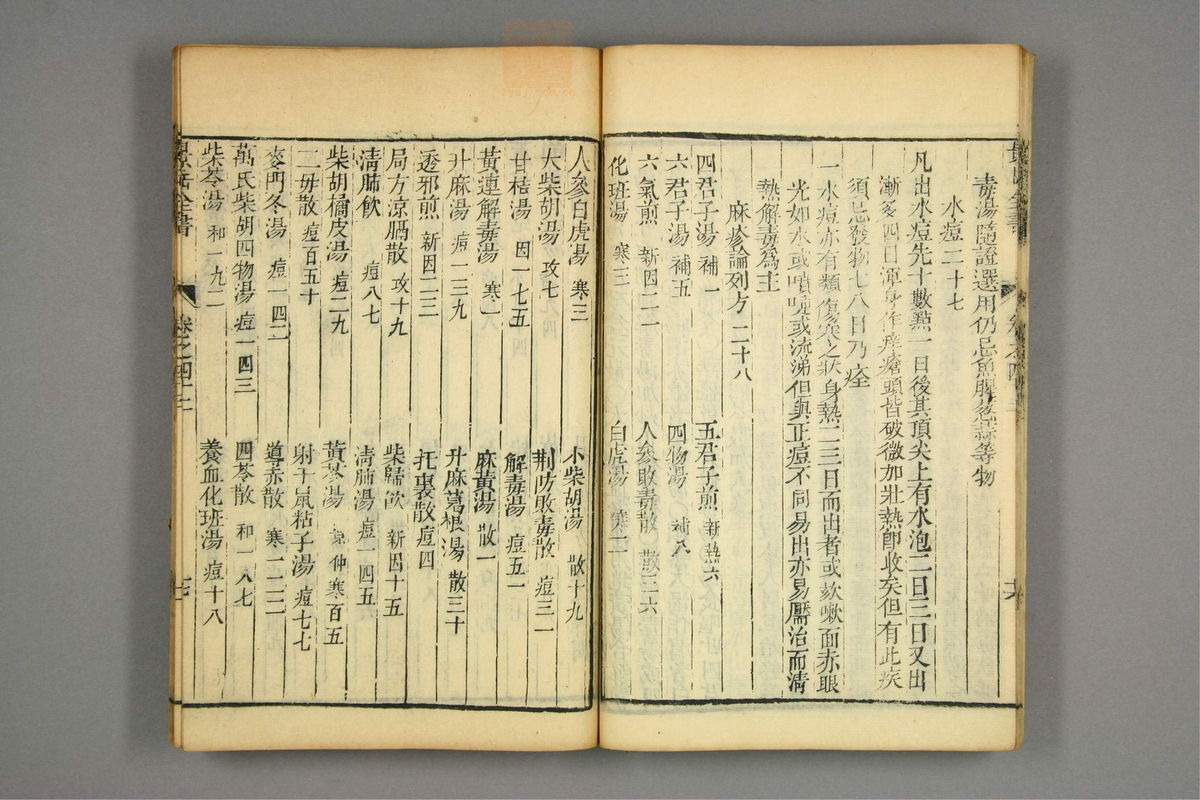 毒湯隨證選用仍忌魚腥葱蒜等物
水痘二十七
凡出水痘先十數點一日後其頂尖上有水泡二日三日又出
漸多四日渾身作痒瘡頭皆破微加壯熱卽收矣但有此疾
須忌發物七八日乃痊
一水痘亦有類傷寒之狀身熱二三日而出者或欬嗽面赤眼
光如水或噴嚏或流涕但與正痘不同易出亦易靨治而清
熱解毒爲主
麻疹論列方 二十八
四君子湯 補一 五君子煎 新熱六
六君子湯 補五 四物湯 補八
六氣煎 新因二一 人參敗毒散 散三六
化斑湯 寒三 白虎湯 寒二
人參白虎湯 寒三 小柴胡湯 散十九
大柴胡湯 攻七 荆防敗毒散 痘三一
甘桔湯 因一七五 解毒湯 痘五一
黃連解毒湯 寒一 麻黃湯 散一
升麻湯 痘一三九 升麻葛根湯 散三十
透邪煎 新因二三 托裏散 痘四
局方涼膈散 攻十九 柴歸飲 新因十五
清肺飲 痘八七 清肺湯 痘一四五
柴胡橘皮湯 痘二九 黃芩湯 寒百五
二母散 痘百五十 射干鼠粘子湯 痘七七
麥門冬湯 痘一四二 導赤散 寒一二二
萬氏柴胡四物湯 痘一四三 四苓散 和一八七
柴苓湯 和一九二 養血化斑湯 痘十八
景岳全書 卷之四十三